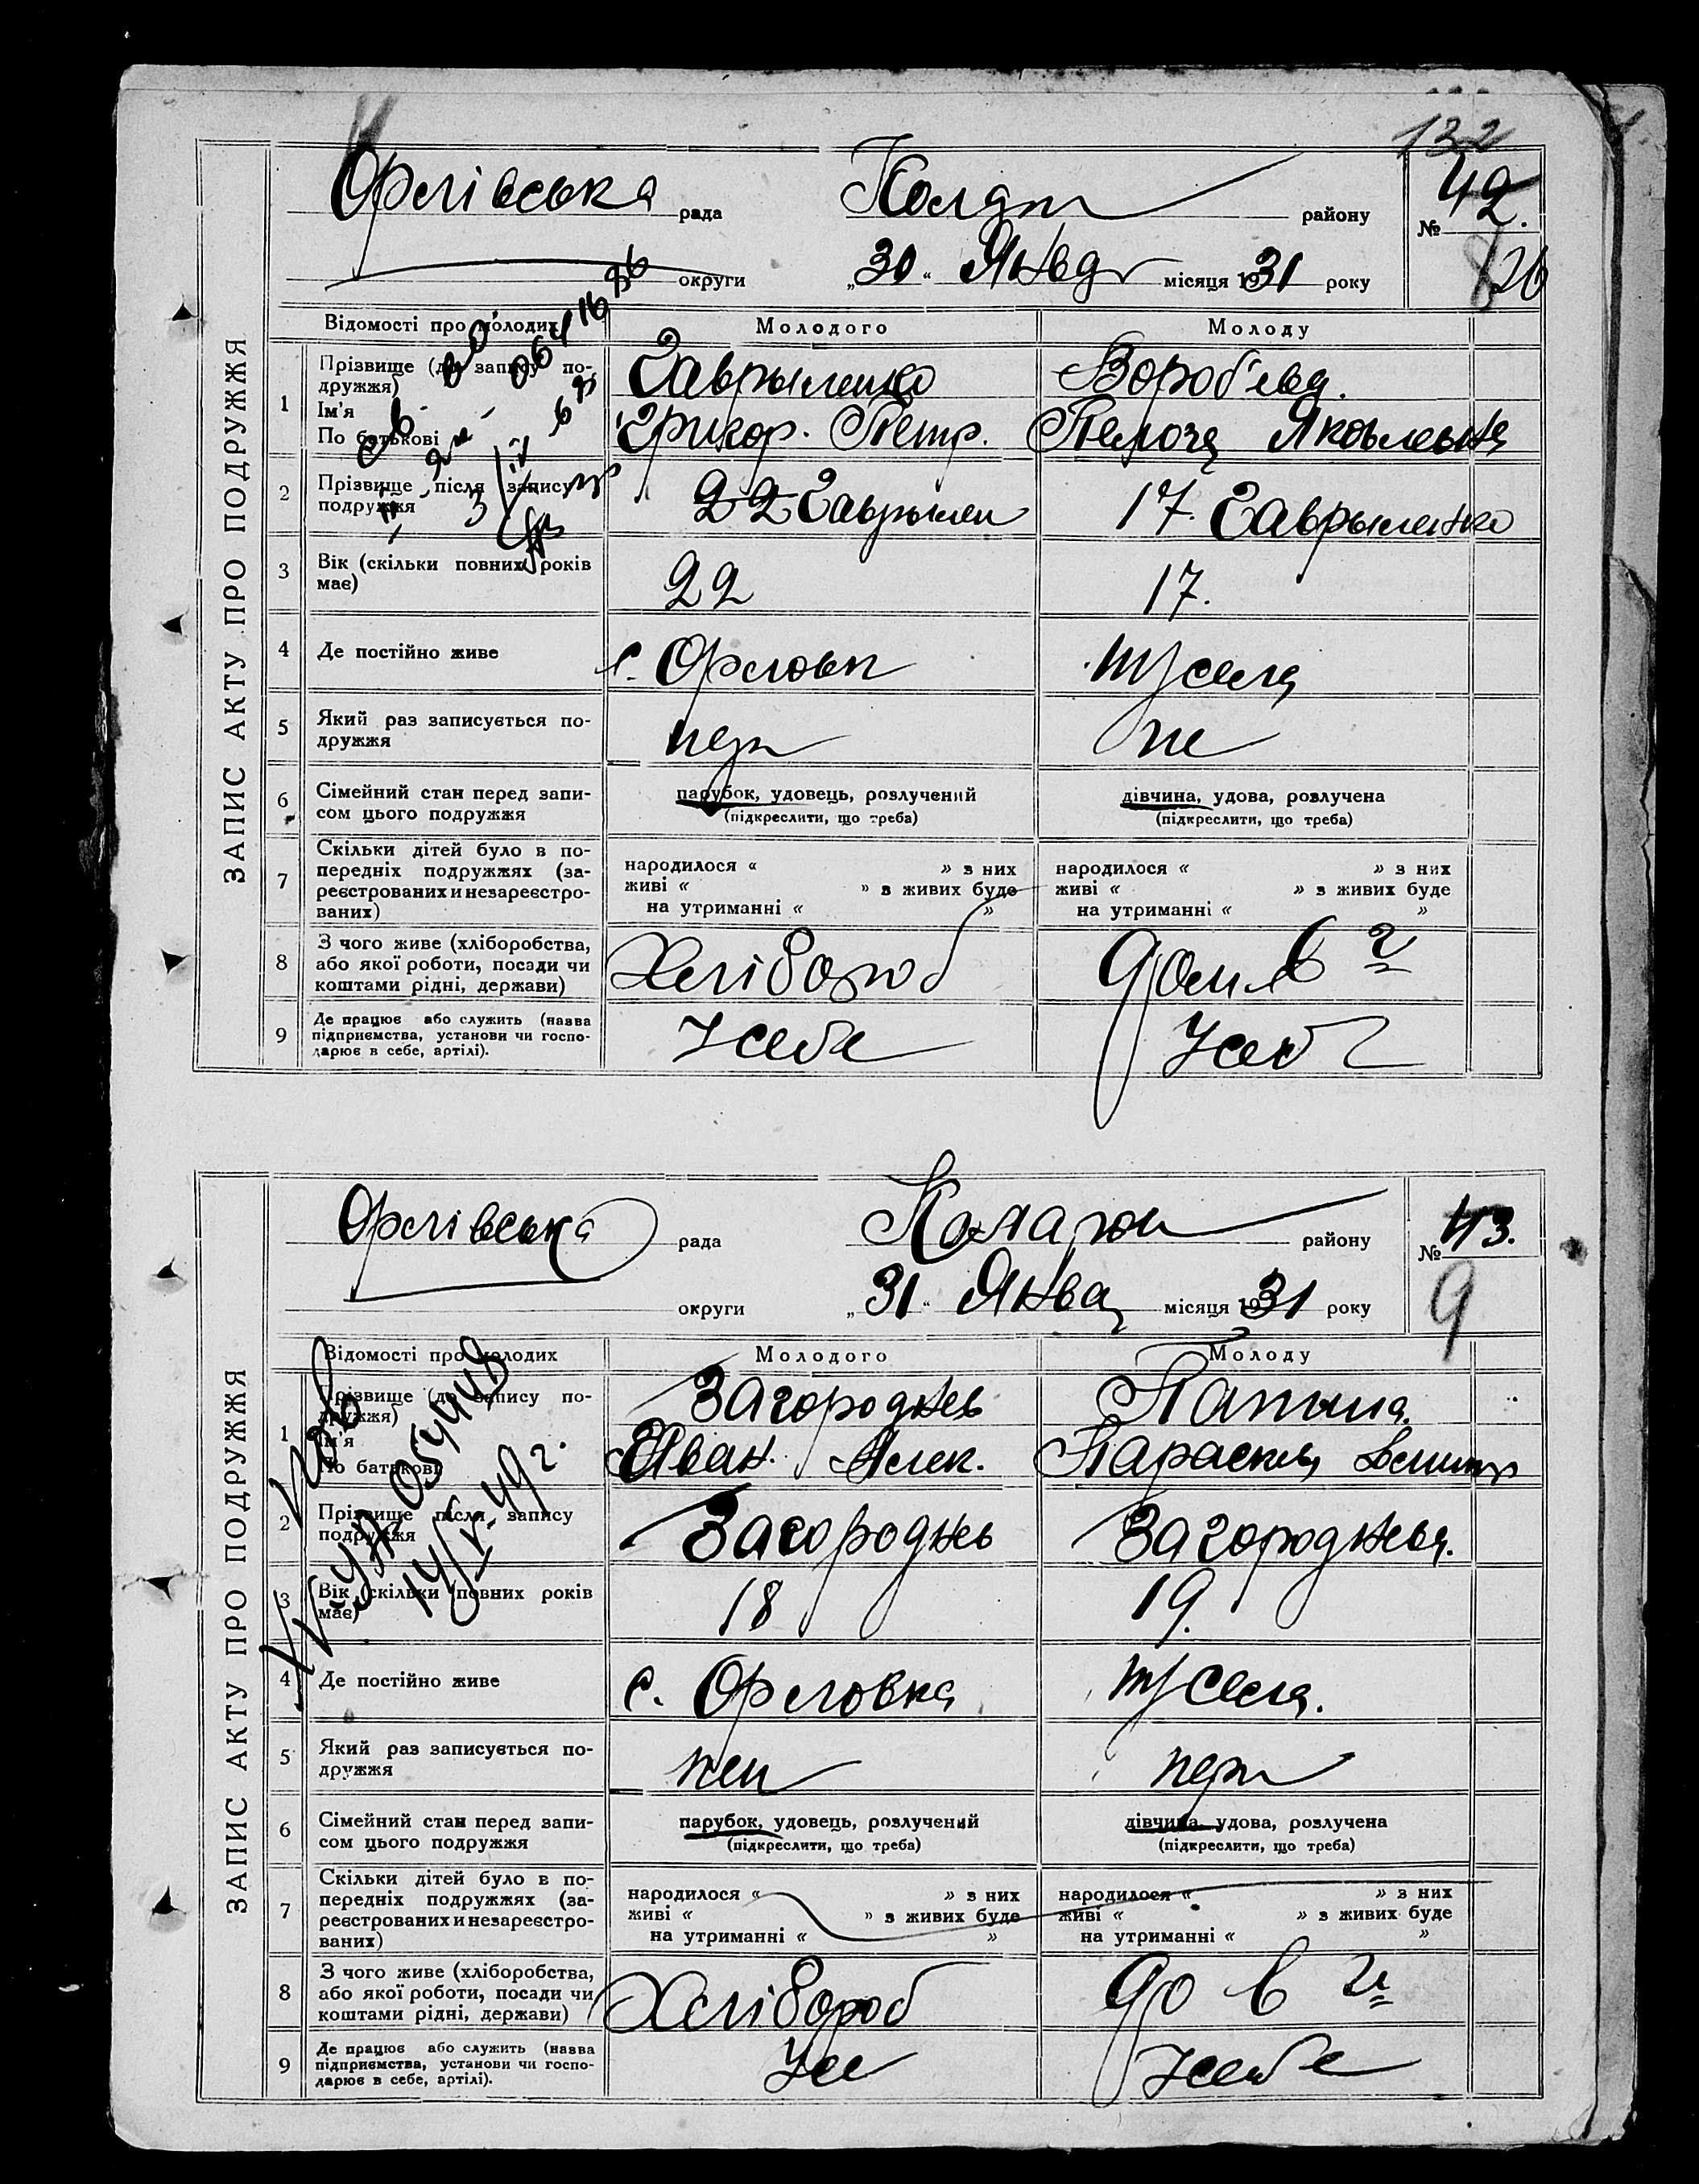 132
Орлівська рада района району № 42.
округи „30“ Янва місяця 1931 року
ЗАПИС АКТУ ПРО ПОДРУЖЖЯ
Відомості про молодих Молодого Молоду
1 Прізвище (до запису по-
дружжя)
Гаврыленко Вороб'ева.
Ім'я
По батькові
Григор. Петр. Яковлевна
2 Прізвище після запису
подружжя
22 Гаврылен 17. Гаврыленко
3 Вік (скільки повних років
має)
22 17.
4 Де постійно живе с. Орловк т/села
5 Який раз записується по-
дружжя
пер пе
6 Сімейний стан перед запи-
сом цього подружжя
парубок, удовець, розлучений дівчина, удова, розлучена
(підкреслити, що треба) (підкреслити, що треба)
7 Скільки дітей було в по-
передніх подружжях (за-
реєстрованих и незареєстро-
ваних)
народилося « » з них народилося « » з них
живі « » з живих буде живі « » з живих буде
на утриманні « » на утриманні « »
8 З чого живе (хліборобства,
або якої роботи, посади чи
коштами рідні, держави)
Хлібороб
9 Де працює або служить (назва
підприємства, установи чи госпо-
дарює в себе, артілі).
У себе У себ
Орлівська рада району № 43.
округи „31“ Янва місяця 1931 року
9
ЗАПИС АКТУ ПРО ПОДРУЖЖЯ
Відомості про молодих Молодого Молоду
1 Прізвище (до запису по-
дружжя)
Загороднев Папина.
Ім'я
По батькові
Иван. Алек. Параскев
2 Прізвище після запису
подружжя
Загороднь Загороднева.
3 Вік (скільки повних років
має)
18 19.
4 Де постійно живе с. Орловка т/села.
5 Який раз записується по-
дружжя
пер
6 Сімейний стан перед запи-
сом цього подружжя
парубок, удовець, розлучений дівчина, удова, розлучена
(підкреслити, що треба) (підкреслити, що треба)
7 Скільки дітей було в по-
передніх подружжях (за-
реєстрованих и незареєстро-
ваних)
народилося « » з них народилося « » з них
живі « » з живих буде живі « » з живих буде
на утриманні « » на утриманні « »
8 З чого живе (хліборобства,
або якої роботи, посади чи
коштами рідні, держави)
Хлібороб
9 Де працює або служить (назва
підприємства, установи чи госпо-
дарює в себе, артілі).
У се У себе